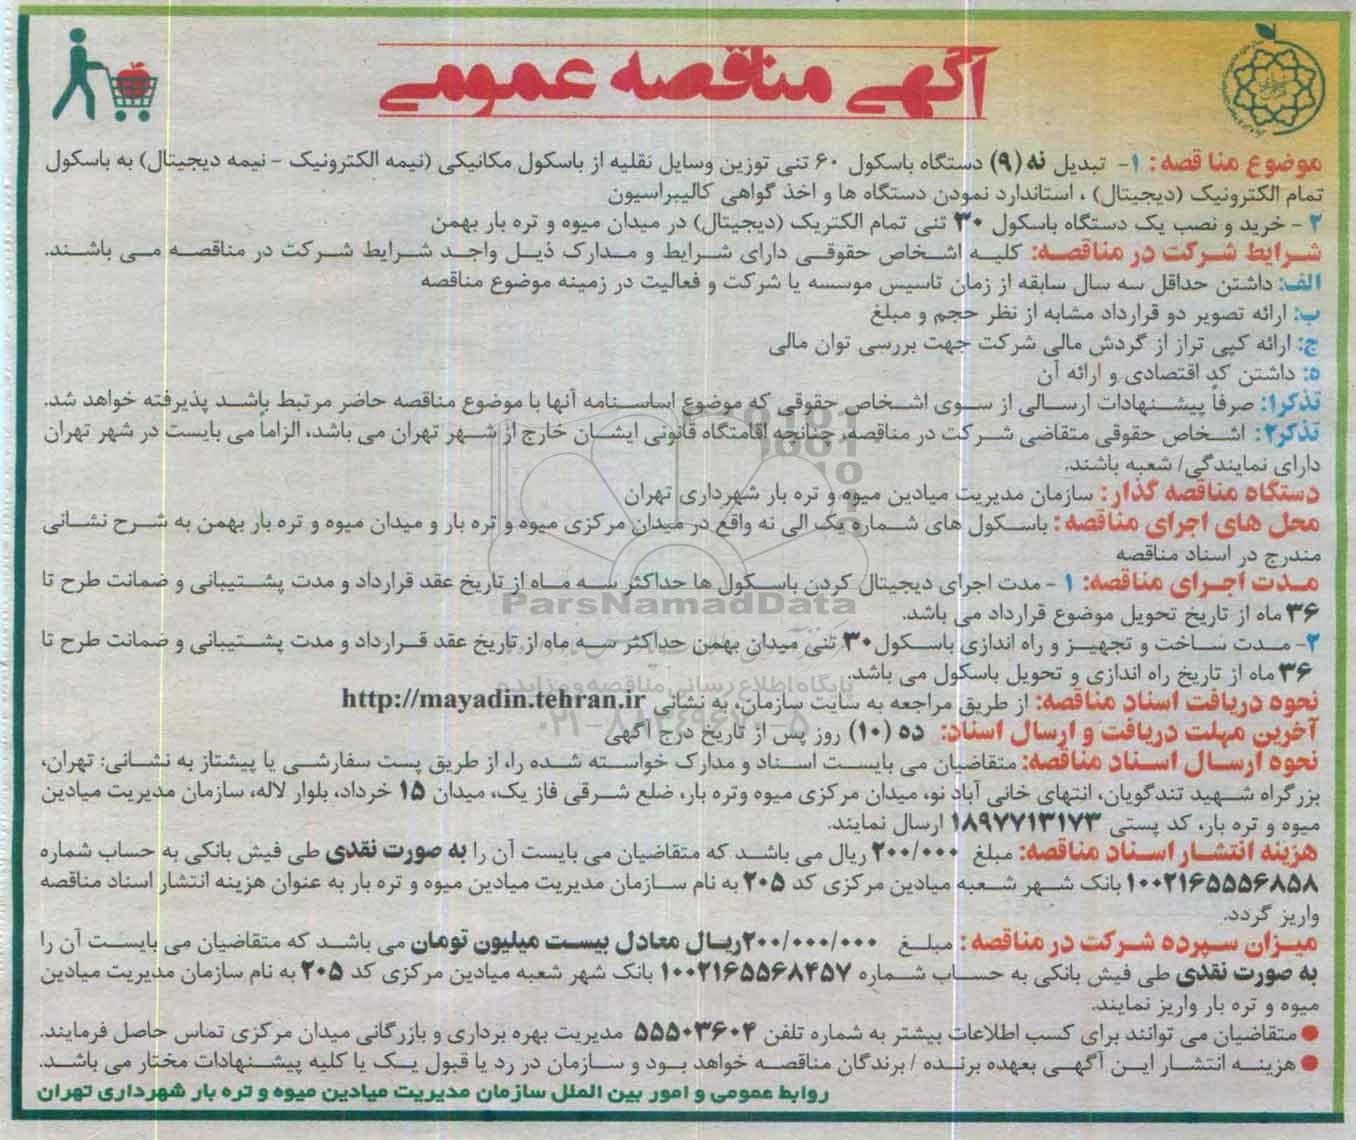 آگهی مناقصه عمومی
موضوع مناقصه: ۱- تبدیل نه (۹) دستگاه باسکول ۶۰ تنی توزین وسایل نقلیه از باسکول مکانیکی (نیمه الکترونیک - نیمه دیجیتال) به باسکول
تمام الکترونیک (دیجیتال) ، استاندارد نمودن دستگاه ها و اخذ گواهی کالیبراسیون
۲ - خرید و نصب یک دستگاه باسکول ۳۰ تنی تمام الکتریک (دیجیتال) در میدان میوه و تره بار بهمن
شرایط شرکت در مناقصه: کلیه اشخاص حقوقی دارای شرایط و مدارک ذیل واجد شرایط شرکت در مناقصه می باشند.
الف: داشتن حداقل سه سال سابقه از زمان تاسیس موسسه یا شرکت و فعالیت در زمینه موضوع مناقصه
ب: ارائه تصویر دو قرارداد مشابه از نظر حجم و مبلغ
ج: ارائه کپی تراز از گردش مالی شرکت جهت بررسی توان مالی
ه: داشتن کد اقتصادی و ارائه آن
تذکر۱: صرفاً پیشنهادات ارسالی از سوی اشخاص حقوقی که موضوع اساسنامه آنها با موضوع مناقصه حاضر مرتبط باشد پذیرفته خواهد شد.
تذکر۲: اشخاص حقوقی متقاضی شرکت در مناقصه، چنانچه اقامتگاه قانونی ایشان خارج از شهر تهران می باشد، الزاماً می بایست در شهر تهران
دارای نمایندگی/ شعبه باشند.
دستگاه مناقصه گذار: سازمان مدیریت میادین میوه و تره بار شهرداری تهران
محل های اجرای مناقصه: باسکول های شماره یک الی نه واقع در میدان مرکزی میوه و تره بار و میدان میوه و تره بار بهمن به شرح نشانی
مندرج در اسناد مناقصه
مدت اجرای مناقصه: ۱ - مدت اجرای دیجیتال کردن باسکول ها حداکثر سه ماه از تاریخ عقد قرارداد و مدت پشتیبانی و ضمانت طرح تا
۳۶ ماه از تاریخ تحویل موضوع قرارداد می باشد.
۲- مدت ساخت و تجهیز و راه اندازی باسکول ۳۰ تنی میدان بهمن حداکثر سه ماه از تاریخ عقد قرارداد و مدت پشتیبانی و ضمانت طرح تا
۳۶ ماه از تاریخ راه اندازی و تحویل باسکول می باشد.
نحوه دریافت اسناد مناقصه: از طریق مراجعه به سایت سازمان، به نشانی http://mayadin.tehran.ir
آخرین مهلت دریافت و ارسال اسناد: ده (۱۰) روز پس از تاریخ درج آگهی
نحوه ارسال اسناد مناقصه: متقاضیان می بایست اسناد و مدارک خواسته شده را، از طریق پست سفارشی یا پیشتاز به نشانی: تهران،
بزرگراه شهید تندگویان، انتهای خانی آباد نو، میدان مرکزی میوه وتره بار، ضلع شرقی فاز یک، میدان ۱۵ خرداد، بلوار لاله، سازمان مدیریت میادین
میوه و تره بار، کد پستی ۱۸۹۷۷۱۳۱۷۳ ارسال نمایند.
هزینه انتشار اسناد مناقصه: مبلغ ۲۰۰/۰۰۰ ریال می باشد که متقاضیان می بایست آن را به صورت نقدی طی فیش بانکی به حساب شماره
۱۰۰۲۱۶۵۵۵۶۸۵۸ بانک شهر شعبه میادین مرکزی کد ۲۰۵ به نام سازمان مدیریت میادین میوه و تره بار به عنوان هزینه انتشار اسناد مناقصه
واریز گردد.
میزان سپرده شرکت در مناقصه: مبلغ ۲۰۰/۰۰۰/۰۰۰ریال معادل بیست میلیون تومان می باشد که متقاضیان می بایست آن را
به صورت نقدی طی فیش بانکی به حساب شماره ۱۰۰۲۱۶۵۵۶۸۴۵۷ بانک شهر شعبه میادین مرکزی کد ۲۰۵ به نام سازمان مدیریت میادین
میوه و تره بار واریز نمایند.
● متقاضیان می توانند برای کسب اطلاعات بیشتر به شماره تلفن ۵۵۵۰۳۶۰۴ مدیریت بهره برداری و بازرگانی میدان مرکزی تماس حاصل فرمایند.
● هزینه انتشار این آگهی بعهده برنده / برندگان مناقصه خواهد بود و سازمان در رد یا قبول یک یا کلیه پیشنهادات مختار می باشد.
روابط عمومی و امور بین الملل سازمان مدیریت میادین میوه و تره بار شهرداری تهران
ParsNamadData
پایگاه اطلاع رسانی مناقصه و مزایده
۰۲۱-۸۸۳۴۹۶۷۰-۵